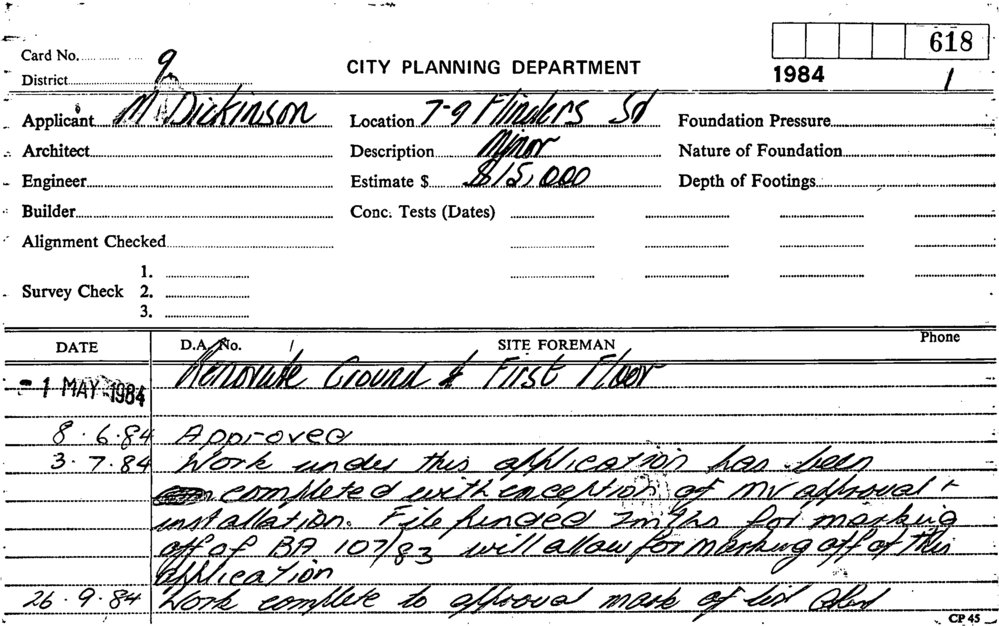 618
Card No. 9
CITY PLANNING DEPARTMENT
1984 1
District
Applicant M Dickinson
Location 7-9 Flinders St
Foundation Pressure
Architect
Description Minor
Nature of Foundation
Engineer
Estimate $ $15,000
Depth of Footings
Builder
Conc. Tests (Dates)
Alignment Checked
1.
Survey Check 2.
3.
DATE D.A. No. / SITE FOREMAN Phone
Renovate Ground & First Floor
- 1 MAY 1984
8.6.84 Approved
3.7.84 Work under this application has been
completed with exception of MV approval +
installation. File pended 2mths for marking
off of BA 107/83 will allow for marking off of this
application
26.9.84 Work complete to approval mark of list
CP 45